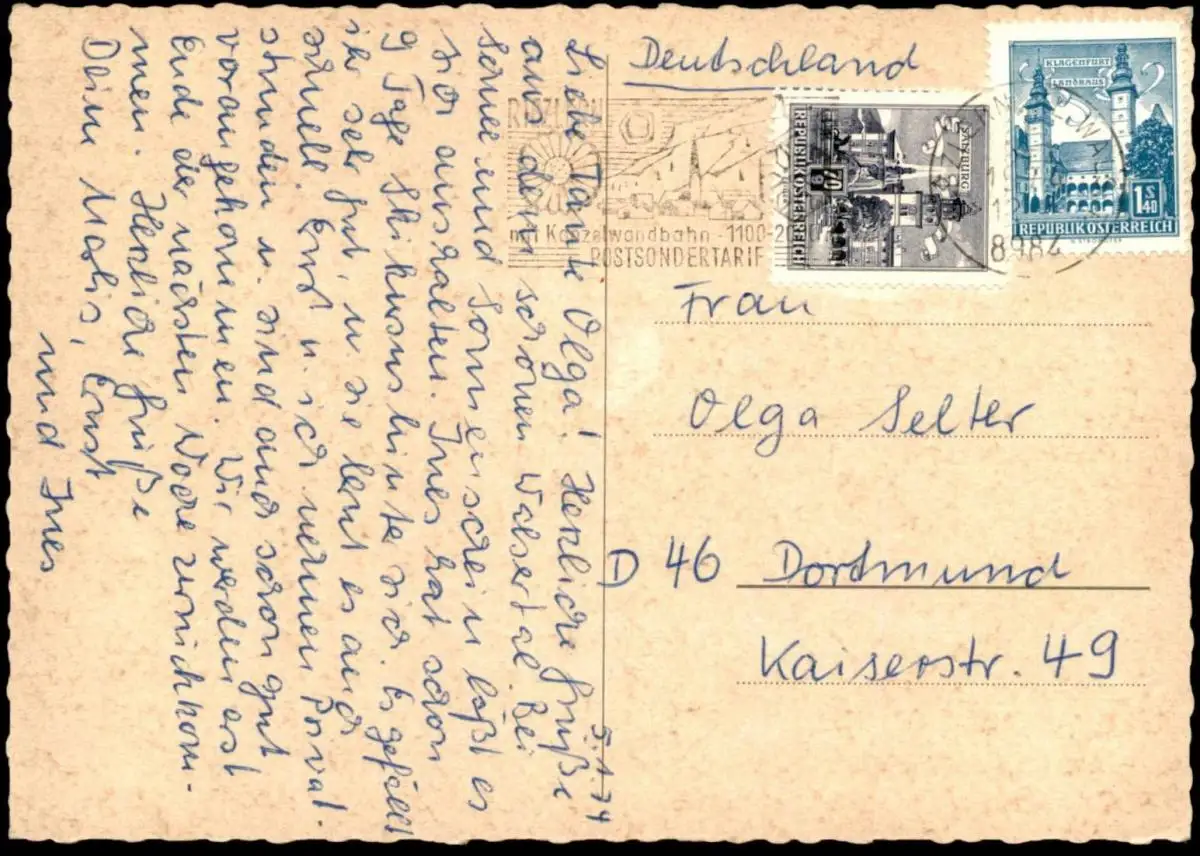 5.1.74
Liebe Tante Olga! Herzliche Grüße
aus dem schönen Walsertal. Bei
Schnee und Sonnenschein läßt es
sich aushalten. Ines hat schon
9 Tage Skikurs hinter sich. Es gefällt
ihr sehr gut, u. sie lernt es auch
schnell. Ernst u. ich nehmen Privat-
stunden u. sind auch schon gut
vorangekommen. Wir werden erst
Ende der nächsten Woche zurückkom-
men. Herzliche Grüße
Deine Marlis, Ernst
und Ines
Deutschland
Frau
Olga Selter
D 46 Dortmund
Kaiserstr. 49
RIEZLERN
mit Kanzelwandbahn - 1100-20
POSTSONDERTARIF
8984
SALZBURG
70 g
REPUBLIK ÖSTERREICH
KLAGENFURT
LANDHAUS
1 S 40
REPUBLIK ÖSTERREICH